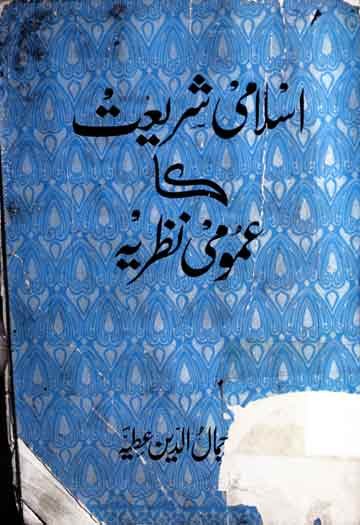 اسلامی شریعت
کا
عمومی نظریہ
جمال الدین عطیہ